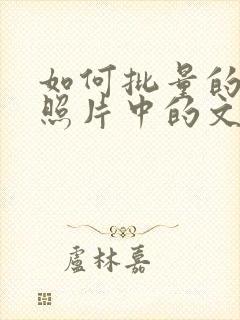 如何批量的
照片中的文
盧林嘉